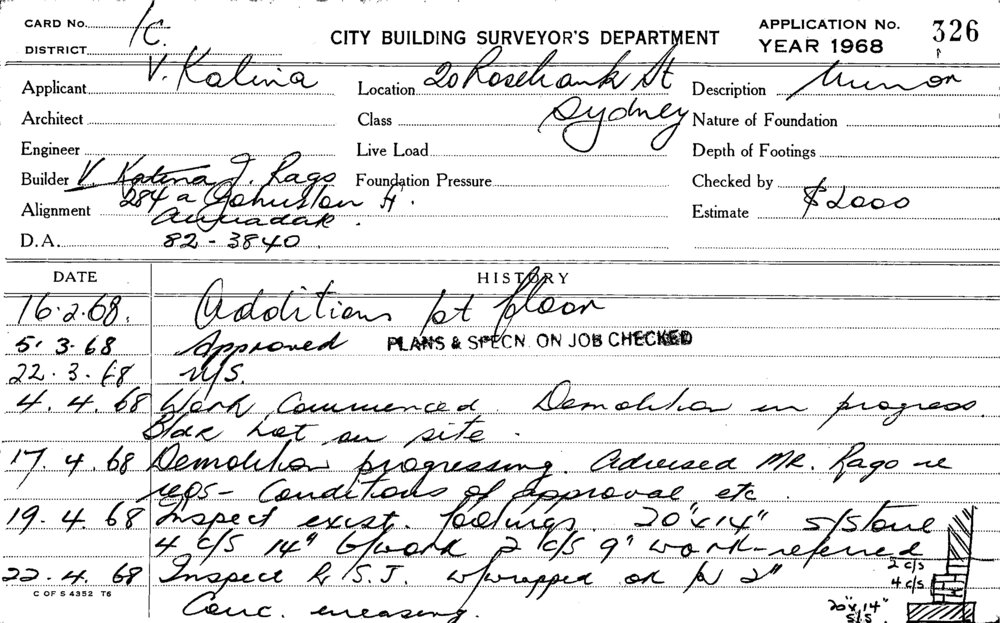 CARD No. 1C.
CITY BUILDING SURVEYOR'S DEPARTMENT
APPLICATION No. 326
YEAR 1968
DISTRICT
Applicant V. Kalina
Location 20 Rosebank St
Sydney
Description Minor
Architect
Class
Nature of Foundation
Engineer
Live Load
Depth of Footings
Builder V. Katina J. Rago
Foundation Pressure
Checked by
284a Johnston St.
Alignment Annandale.
Estimate $2000
D.A. 82-3840
DATE HISTORY
16.2.68. Additions 1st floor
5.3.68 Approved PLANS & SPECN. ON JOB CHECKED
22.3.68 N/S.
4.4.68 Work Commenced. Demolition in progress.
Bldr not on site.
17.4.68 Demolition progressing. Advised Mr. Rago re
reqs - Conditions of approval etc.
19.4.68 Inspect exist. footings. 20"x14" s/stone
4 c/s 14" b/work 2 c/s 9" work-referred
22.4.68 Inspect R.S.J. w/wrapped ok 2"
Conc. encasing.
2 c/s
4 c/s
20"x14"
S/S.
C OF S 4352 T6